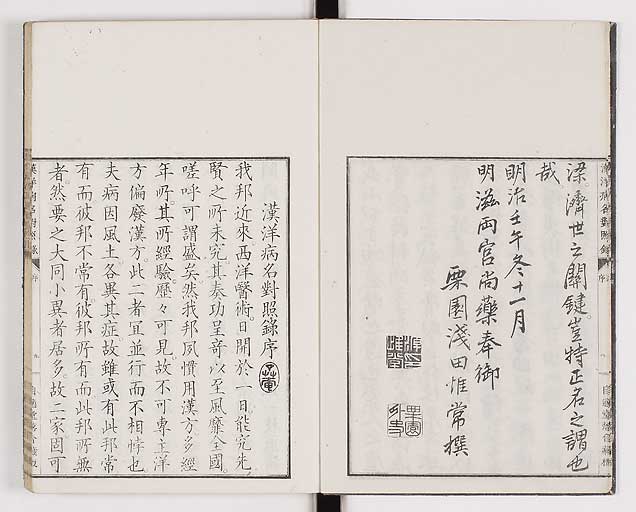 梁濟世之關鍵豈特正名之謂也
哉
明治壬午冬十一月
明滋両宮尚藥奉御
栗園淺田惟常撰
漢洋病名對照錄序
我邦近來西洋醫術日開於一日能究先
賢之所未究其奏功呈奇以至風靡全國
嗟呼可謂盛矣然我邦夙慣用漢方多經
年所其所經驗歷々可見故不可専主洋
方偏廢漢方此二者宜並行而不相悖也
夫病因風土各異其症故雖或有此邦常
有而彼邦不常有彼邦所有而此邦所無
者然要之大同小異者居多故二家固可